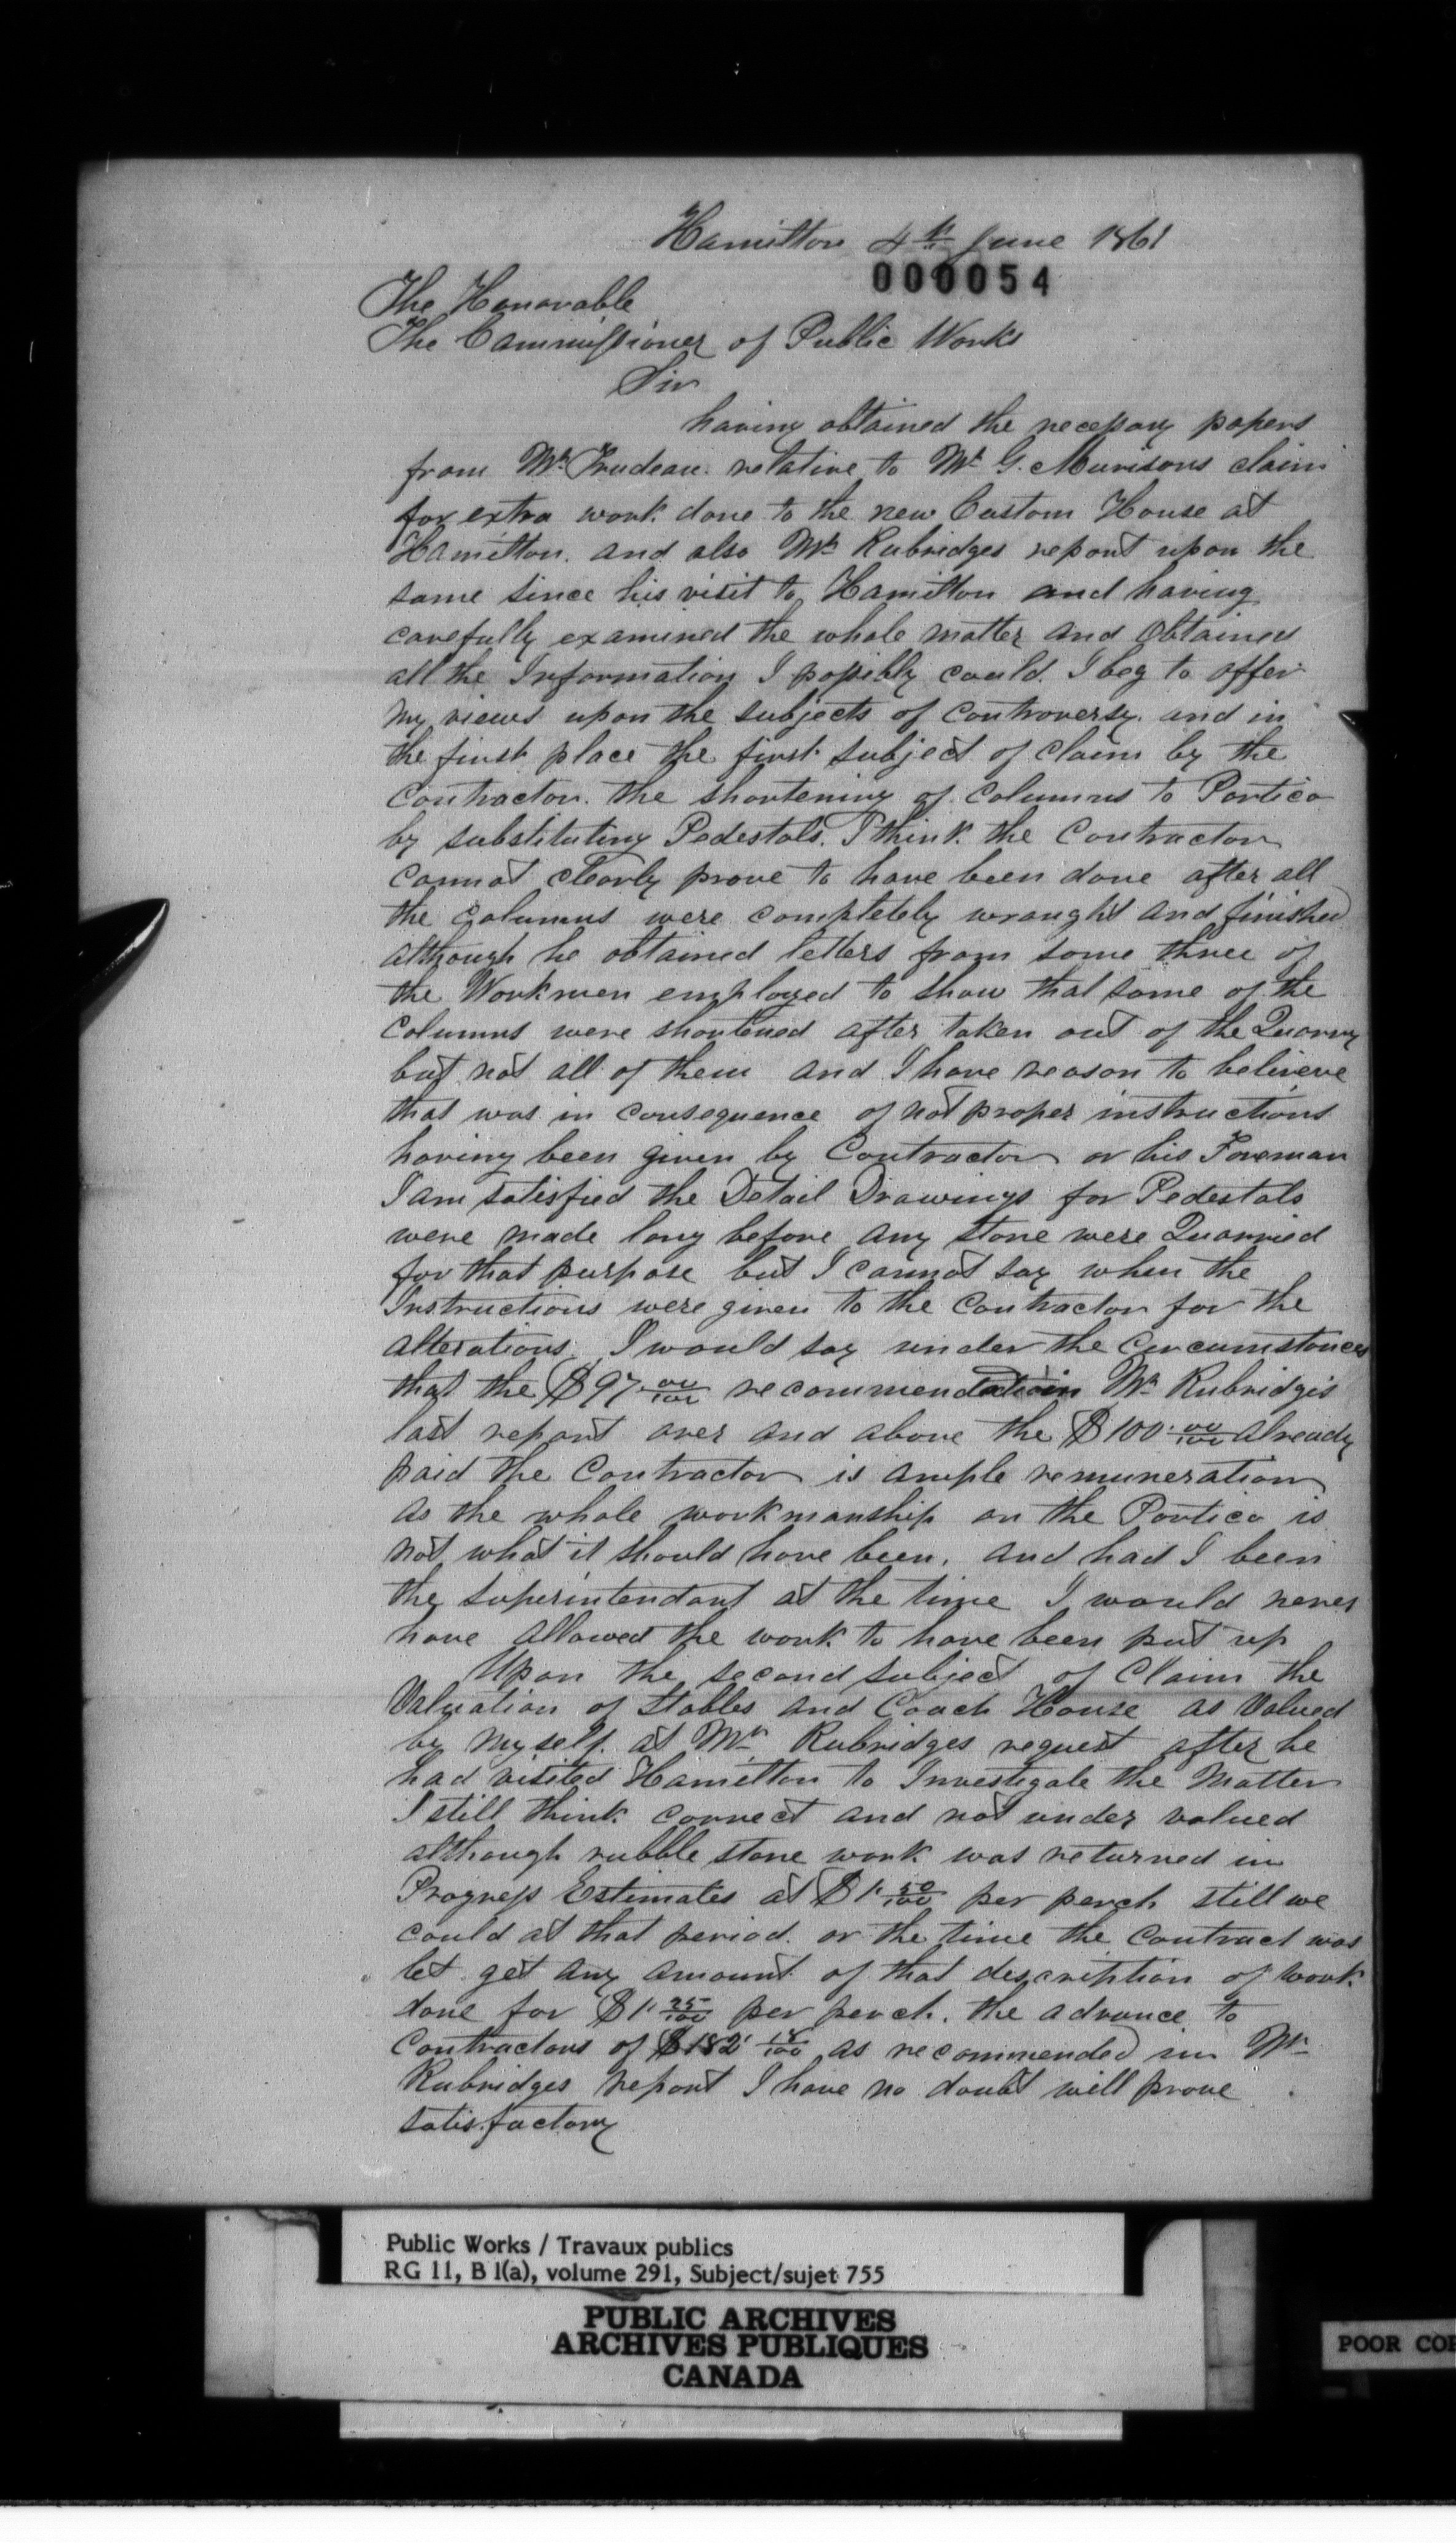 Hamilton 4th June 1861
000054
The Honorable
The Commissioner of Public Works
Sir
having obtained the necessary papers
from Mr Trudeau. relative to Mr G. Murisons claim
for extra work done to the new Custom House at
Hamilton. and also Mr Rubridges report upon the
same since his visit to Hamilton and having
carefully examined the whole matter and Obtained
all the Information I possibly could. I beg to offer
my views upon the subjects of Controversy. and in
the first place the first subject of claim by the
Contractor. the shortening of Columns to Portico
by substituting Pedestals. I think the Contractor
Cannot clearly prove to have been done after all
the Columns were completely wrought and finished
although he obtained letters from some three of
the Workmen employed to show that some of the
Columns were shortened after taken out of the Quarry
but not all of them and I have reason to believe
that was in consequence of not proper instructions
having been given by Contractor or his Foreman
I am satisfied the Detail Drawings for Pedestals
were made long before any stone were Quarried
for that purpose but I cannot say when the
Instructions were given to the Contractor for the
alterations. I would say under the Circumstances
that the $97 00/100 recommended in Mr Rubridges
last report over and above the $100 00/100 already
paid the Contractor is ample remuneration
as the whole workmanship on the Portico is
not what it should have been. and had I been
the superintendant at the time I would never
have allowed the work to have been put up
Upon the second subject of Claim the
Valuation of Stables and Coach House as Valued
by myself. at Mr Rubridges request after he
had visited Hamilton to Investigate the Matter
I still think correct and not under valued
although rubble stone work was returned in
Progress Estimates at $1 50/100 per perch still we
could at that period. or the time the Contract was
let get any amount of that description of work
done for $1 25/100 per perch. the advance to
Contractors of $182 18/100 as recommended in Mr
Rubridges report I have no doubt will prove
satisfactory
Public Works / Travaux publics
RG 11, B 1(a), volume 291, Subject/sujet 755
PUBLIC ARCHIVES
ARCHIVES PUBLIQUES
CANADA
POOR COP